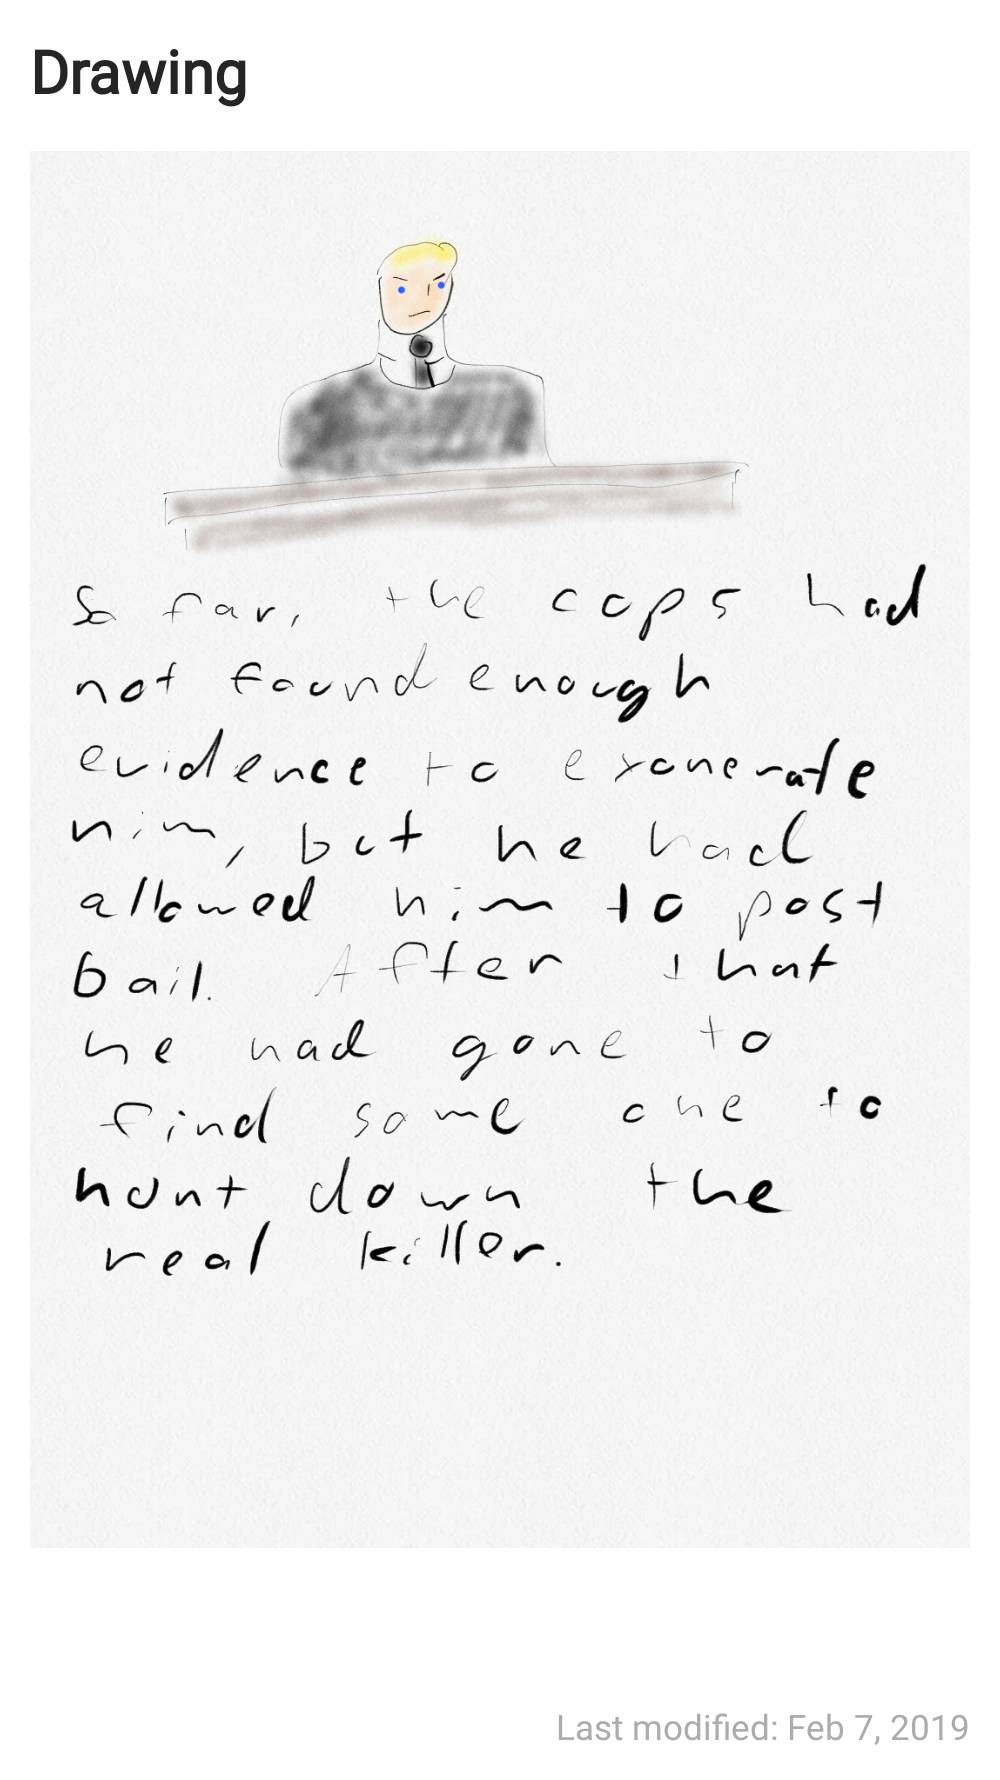 Drawing
So far, the cops had
not found enough
evidence to exonerate
him, but he had
allowed him to post
bail. After that
he had gone to
find some one to
hunt down the
real killer.
Last modified: Feb 7, 2019